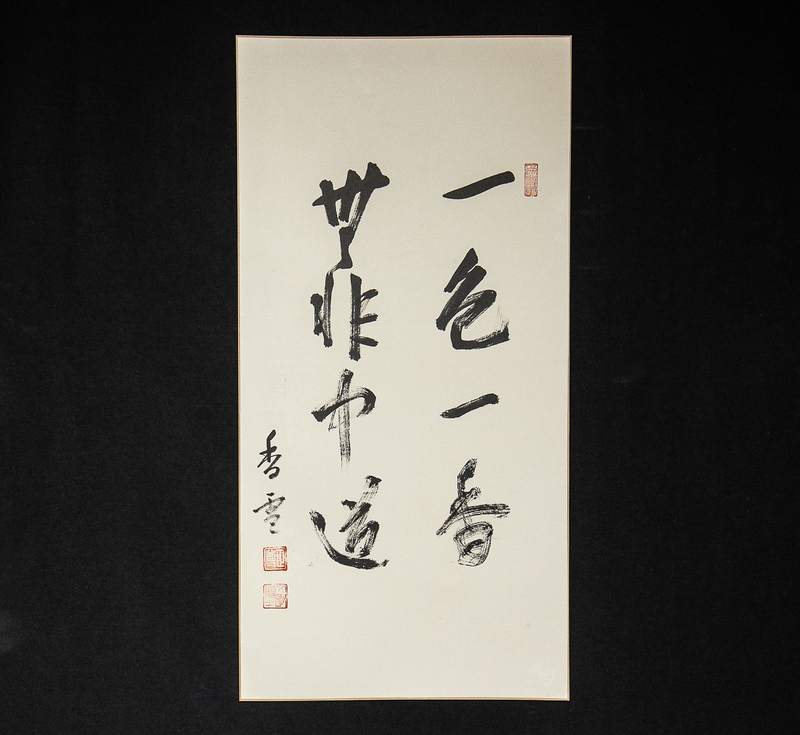 一色一香
無非中道
香雪